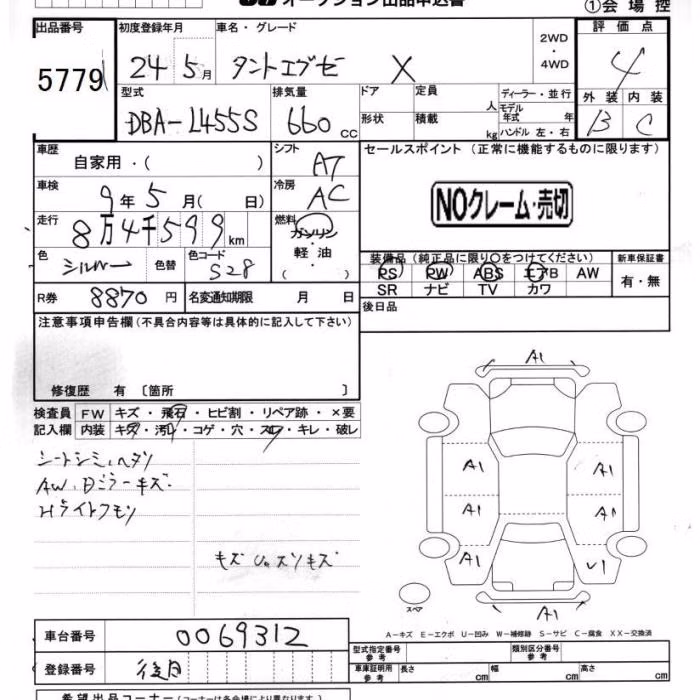 オークション出品申込書
①会場控
出品番号 初度登録年月 車名・グレード 評価点
5779 24年5月 タントエグゼ X 2WD・4WD 4
型式 排気量 ドア 定員 人 ディーラー・並行 外装 内装
DBA-L455S 660cc 形状 積載 kg モデル年式 年 ハンドル 左・右 B C
車歴 自家用・( ) シフト AT セールスポイント (正常に機能するものに限ります)
車検 9年5月( 日) 冷房 AC
NOクレーム・売切
走行 8万4千599km 燃料 ガソリン・軽油・( )
色 シルバー 色替 色コード S28
装備品 (純正品に限り○をつけてください) 新車保証書
PS PW ABS エアB AW 有・無
SR ナビ TV カワ
R券 8870円 名変通知期限 月 日 後日品
注意事項申告欄 (不具合内容等は具体的に記入して下さい)
修復歴 有 〔箇所 〕
検査員 FW キズ・飛石・ヒビ割・リペア跡・×要
記入欄 内装 キズ・汚れ・コゲ・穴・スレ・キレ・破レ
シートシミ、ヘタリ
AW、Dミラーキズ
Hライトクモリ
キズ U。スリキズ
A1
A1 A1
A1 A1
A1 U1
A1
スペア
A-キズ E-エクボ U-凹み W-補修跡 S-サビ C-腐食 XX-交換済
車台番号 0069312
型式指定番号 参考 類別区分番号 参考
登録番号 後日
車庫証明用 参考 長さ cm 幅 cm 高さ cm
希望出品コーナー (コーナーは各会場により異なります。)